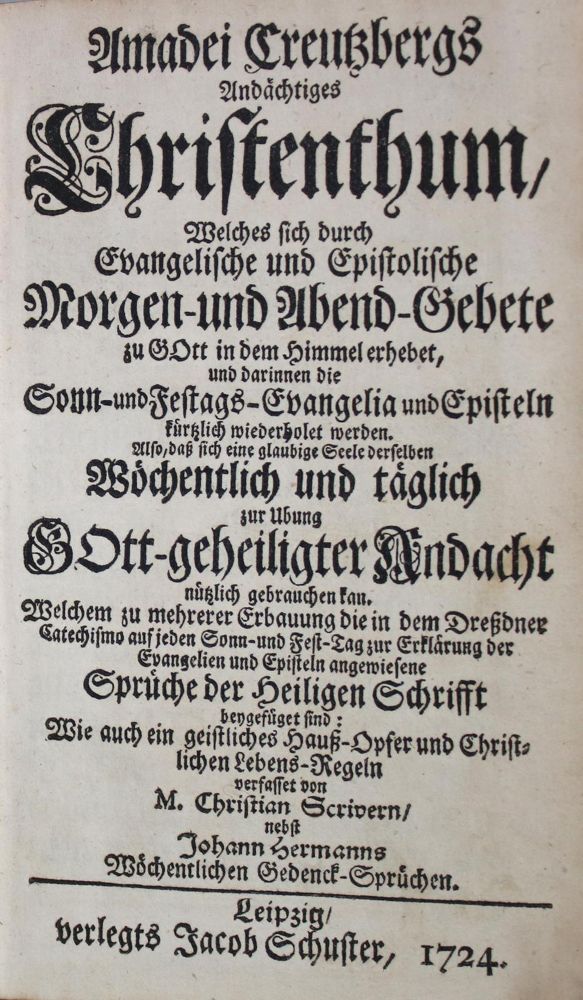 Amadei Creutzbergs
Andächtiges
Christenthum/
Welches sich durch
Evangelische und Epistolische
Morgen-und Abend-Gebete
zu GOtt in dem Himmel erhebet,
und darinnen die
Sonn-und Festags-Evangelia und Episteln
kürtzlich wiederholet werden.
Also, daß sich eine glaubige Seele derselben
Wöchentlich und täglich
zur Ubung
GOtt-geheiligter Andacht
nützlich gebrauchen kan.
Welchem zu mehrerer Erbauung die in dem Dreßdner
Catechismo auf jeden Sonn-und Fest-Tag zur Erklärung der
Evangelien und Episteln angewiesene
Sprüche der Heiligen Schrifft
beygefüget sind:
Wie auch ein geistliches Hauß-Opfer und Christ-
lichen Lebens-Regeln
verfasset von
M. Christian Scrivern/
nebst
Johann Hermanns
Wöchentlichen Gedenck-Sprüchen.
Leipzig/
verlegts Jacob Schuster, 1724.